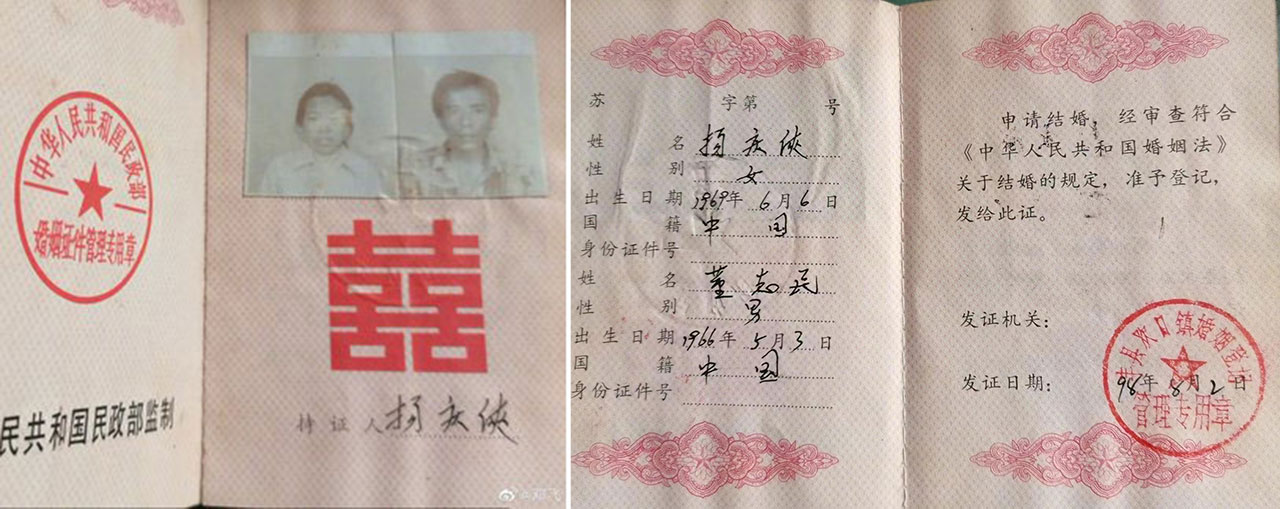 中华人民共和国民政部
婚姻证件管理专用章
民共和国民政部监制
囍
持证人 杨庆侠
@邓飞
苏 字第 号
姓名 杨庆侠
性别 女
出生日期 1969年6月6日
国籍 中国
身份证件号
姓名 董志民
性别 男
出生日期 1966年5月3日
国籍 中国
身份证件号
申请结婚,经审查符合
《中华人民共和国婚姻法》
关于结婚的规定,准予登记,
发给此证。
发证机关:
丰县欢口镇婚姻登记
发证日期: 98年8月2日
管理专用章